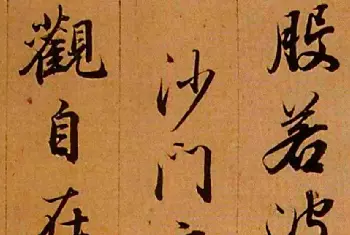 般若波
沙門
觀自在